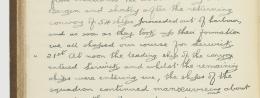 Bergen and shortly after the returning
convoy of 54 ships proceeded out of harbour,
and as soon as they took up their formation
we all shaped our course for Lerwick.
" 21st At noon the leading ship of the convoy
entered Lerwick and whilst the remaining
ships were entering we, the ships of the
squadron continued manœuvering about